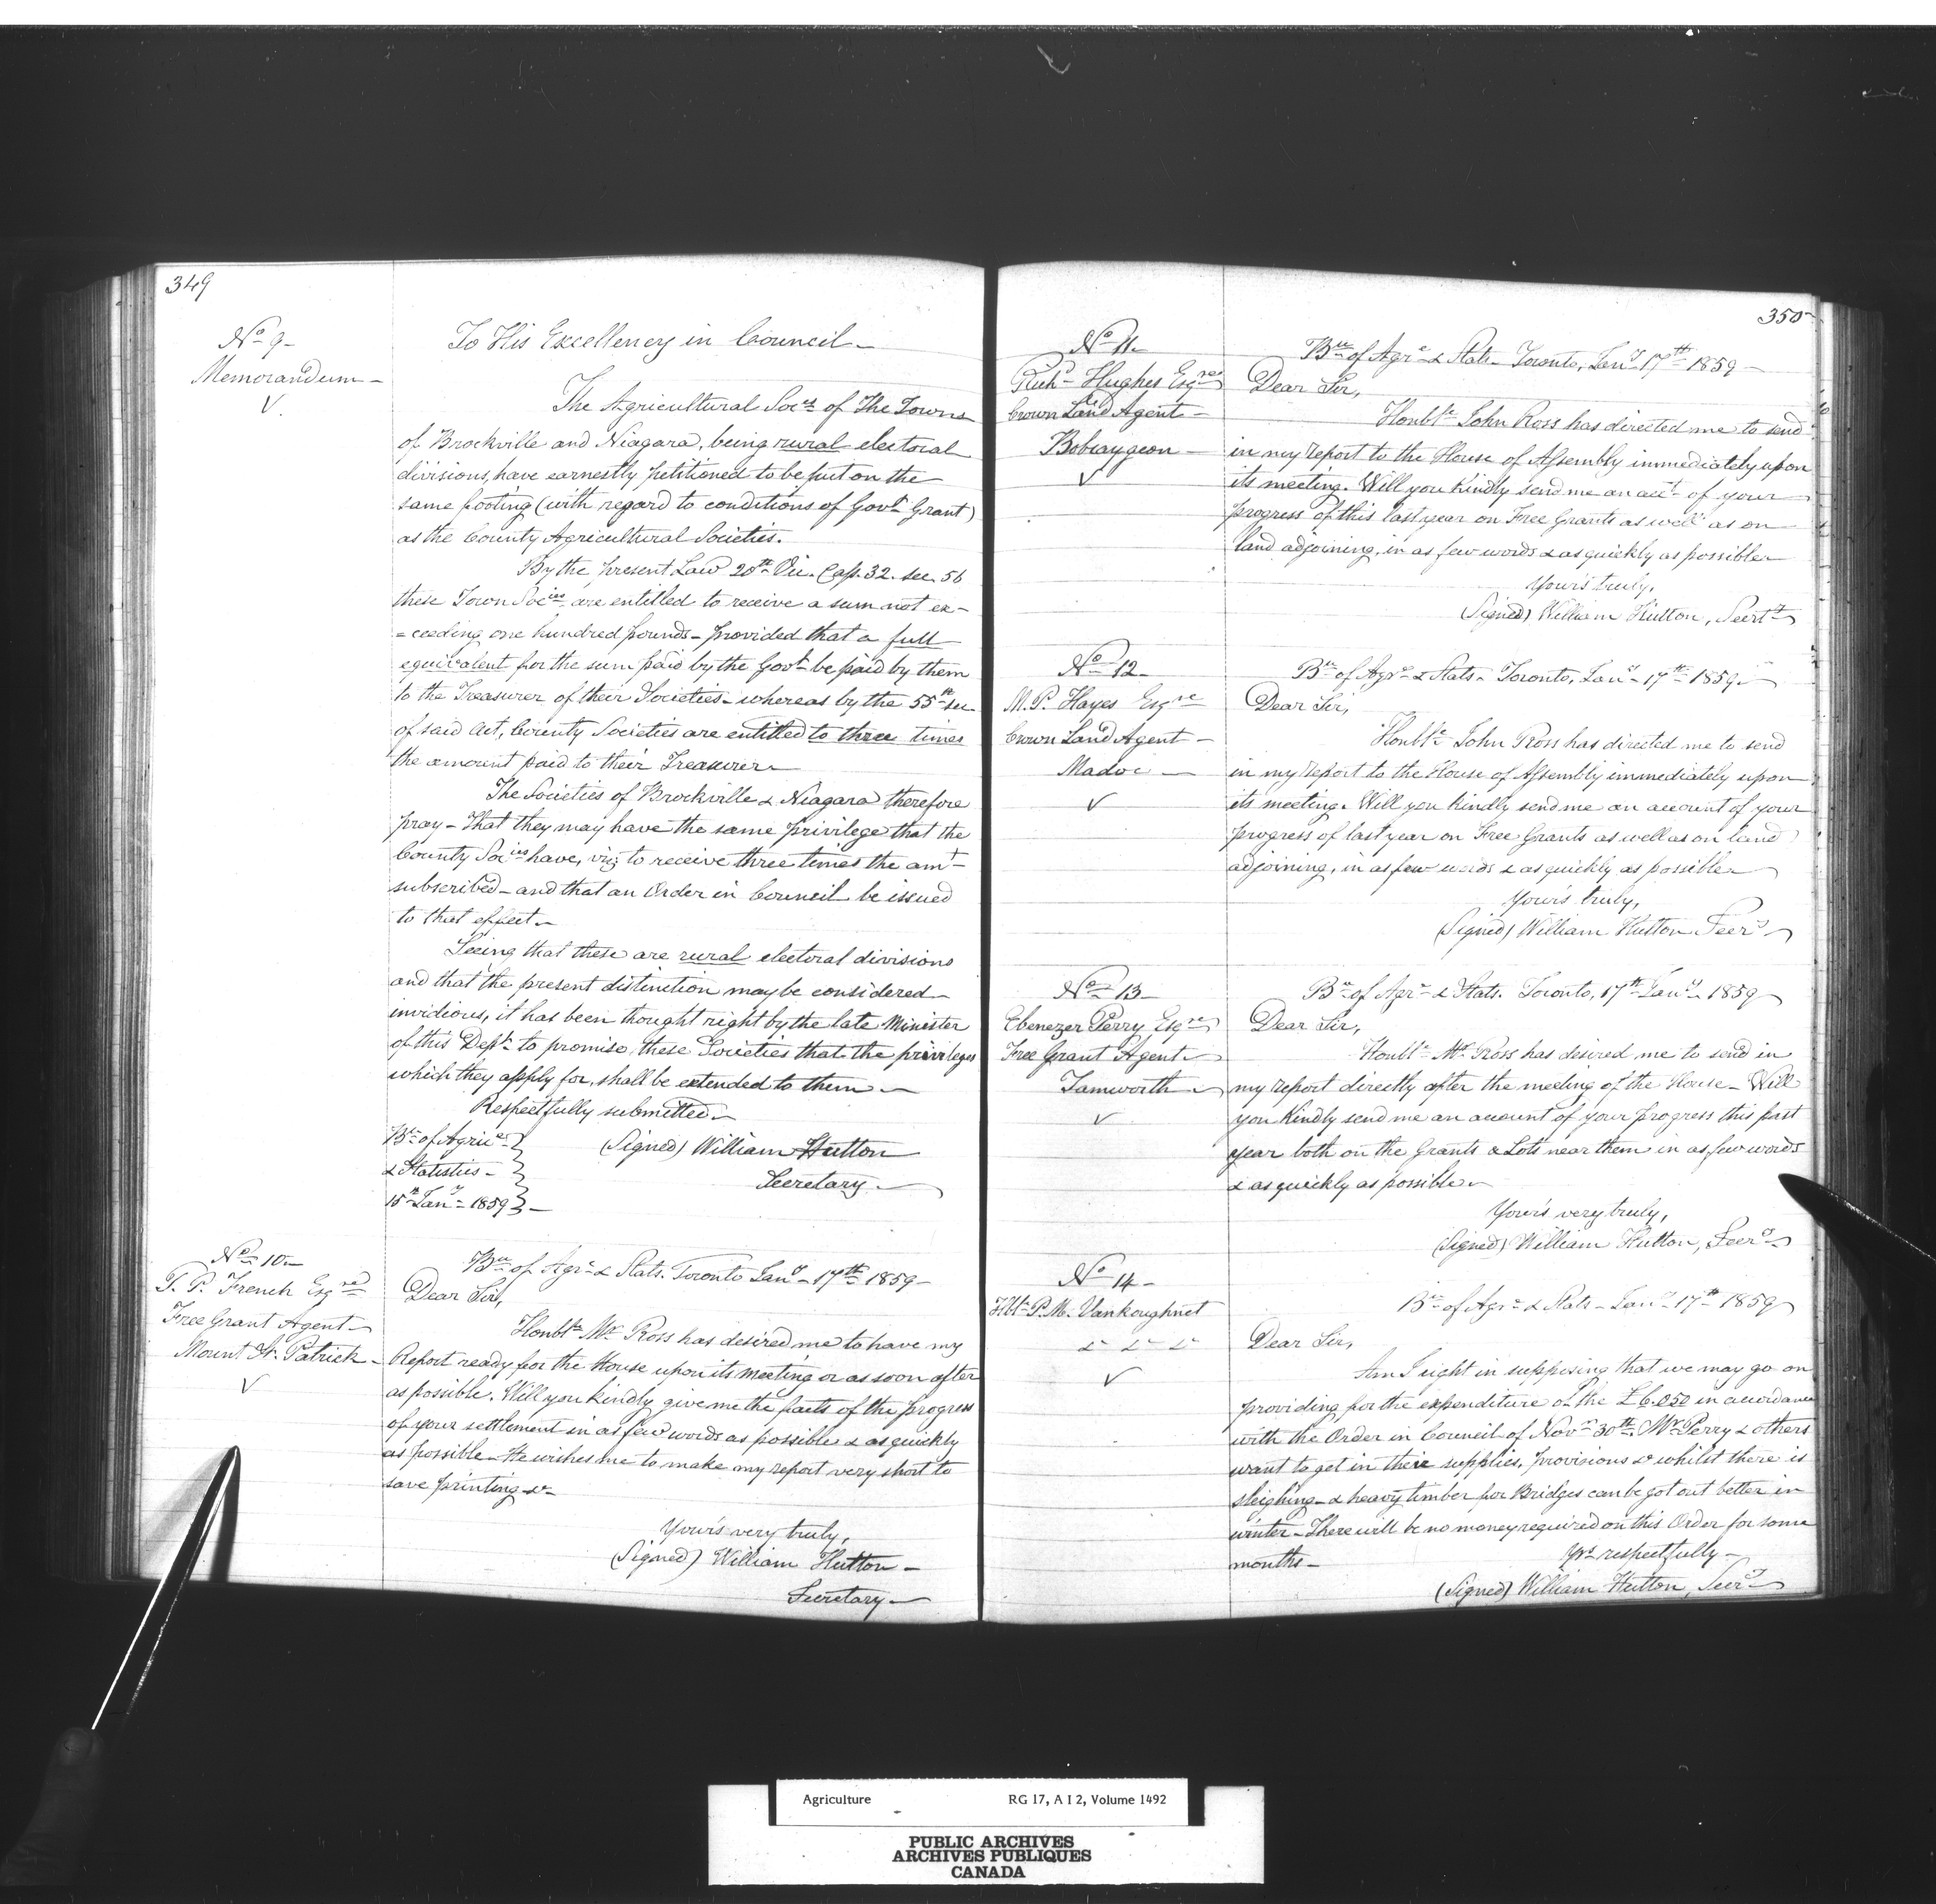 349
No 9-
Memorandum-
V.
To His Excellency in Council-
The Agricultural Socies of The Towns
of Brockville and Niagara, being rural electoral
divisions, have earnestly petitioned to be put on the
same footing (with regard to conditions of Govt Grant)
as the County Agricultural Societies.
By the present Law 20th Vic. Cap. 32. sec. 56
these Town Socies are entitled to receive a sum not ex-
=ceeding one hundred pounds - provided that a full
equivalent for the sum paid by the Govt be paid by them
to the Treasurer of their Societies - whereas by the 55th sec
of said Act, County Societies are entitled to three times
the amount paid to their Treasurer-
The Societies of Brockville & Niagara therefore
pray - That they may have the same privilege that the
County Socies have, viz to receive three times the amt
subscribed - and that an Order in Council be issued
to that effect-
Seeing that these are rural electoral divisions
and that the present distinction may be considered
invidious, it has been thought right by the late Minister
of this Dept to promise these Societies that the privileges
which they apply for, shall be extended to them-
Respectfully submitted-
Bu of Agrice
& Statistics-
15th Jany 1859
(Signed) William Hutton
Secretary-
No 10-
T. P. French Esqre
Free Grant Agent-
Mount St. Patrick-
V
Bu of Agre & Stats. Toronto Jany - 17th 1859-
Dear Sir,
Honble Mr Ross has desired me to have my
Report ready for the House upon its meeting or as soon after
as possible. Will you kindly give me the facts of the progress
of your settlement in as few words as possible & as quickly
as possible - He wishes me to make my report very short to
save printing &c-
Your's very truly,
(Signed) William Hutton-
Secretary-
350-
No 11-
Richd Hughes Esqre
Crown Land Agent-
Bobcaygeon-
V
Bu of Agre & Stats - Toronto, Jany 17th 1859-
Dear Sir,
Honble John Ross has directed me to send
in my report to the House of Assembly immediately upon
its meeting. Will you kindly send me an acct of your
progress of this last year on Free Grants as well as on
land adjoining, in as few words & as quickly as possible-
Your's truly,
(Signed) William Hutton, Secrty
No 12-
M. P. Hayes Esqre
Crown Land Agent-
Madoc-
V
Bu of Agre & Stats - Toronto, Jany - 17th 1859-
Dear Sir,
Honble John Ross has directed me to send
in my report to the House of Assembly immediately upon
its meeting. Will you kindly send me an account of your
progress of last year on Free Grants as well as on land
adjoining, in as few words & as quickly as possible-
Your's truly,
(Signed) William Hutton Secry-
No 13-
Ebenezer Perry Esqre
Free Grant Agent-
Tamworth-
V
Bu of Agre & Stats. Toronto, 17th Jany - 1859
Dear Sir,
Honble Mr Ross has desired me to send in
my report directly after the meeting of the House - Will
you kindly send me an account of your progress this past
year both on the Grants & Lots near them in as few words
& as quickly as possible-
Your's very truly,
(Signed) William Hutton, Secry-
No 14-
Hble P. M. Vankoughnet
&c &c &c
V
Bu of Agre & Stats - Jany 17th 1859
Dear Sir,
Am I right in supposing that we may go on
providing for the expenditure of the £6.050 in accordance
with the Order in Council of Novr 30th. Mr Perry & others
want to get in their supplies, provisions &c whilst there is
sleighing - & heavy timber for Bridges can be got out better in
winter - There will be no money required on this Order for some
months-
Yrs respectfully-
(Signed) William Hutton, Secry-
Agriculture RG 17, A I 2, Volume 1492
PUBLIC ARCHIVES
ARCHIVES PUBLIQUES
CANADA